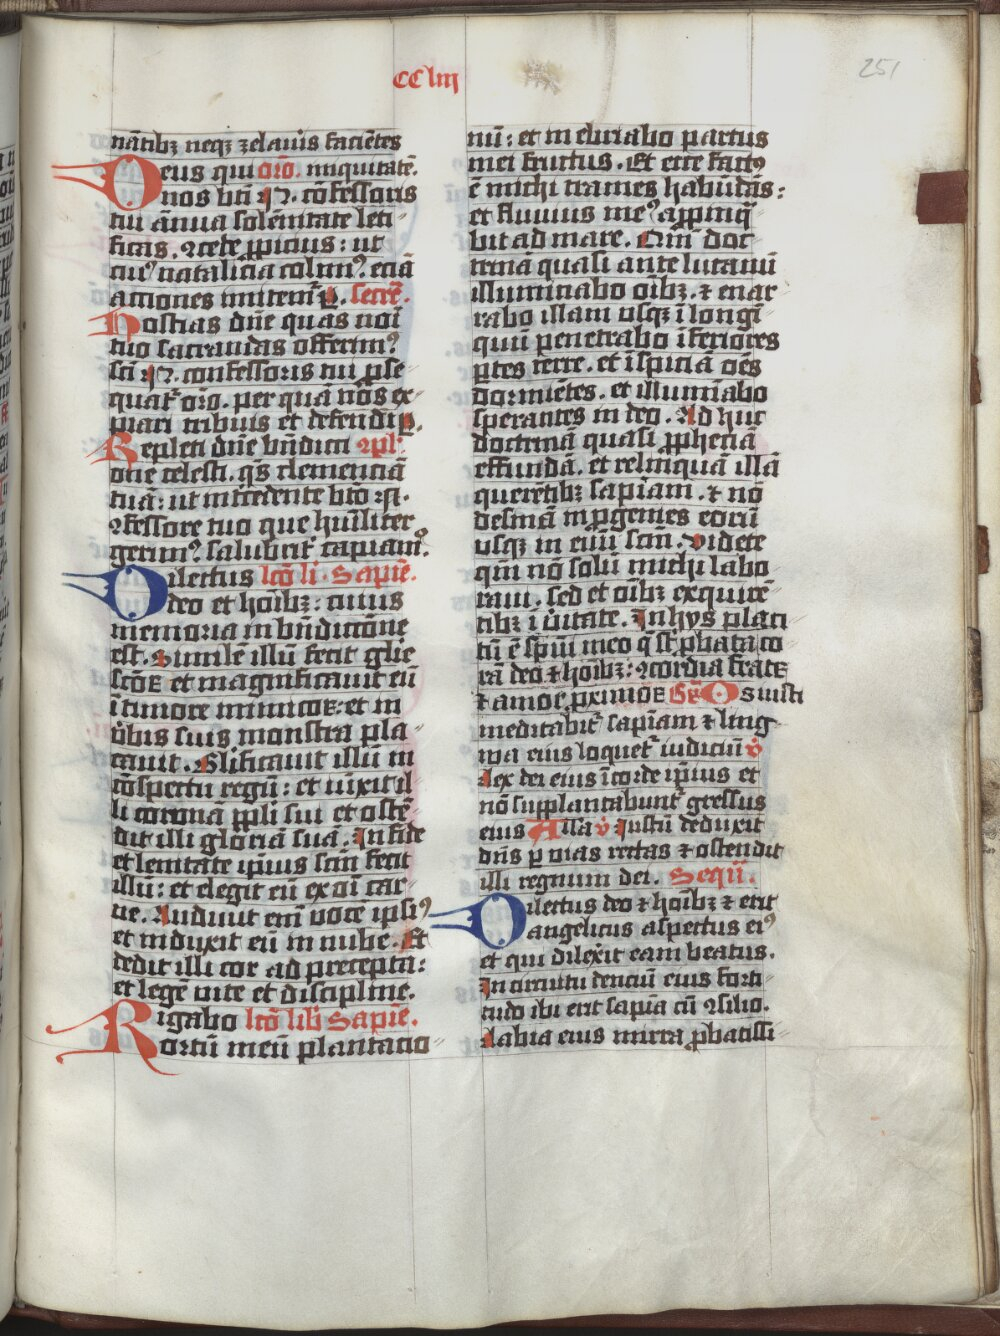 CCliii
251
nãtibꝫ neqꝫ zelaũis faciẽtes
Deus qui orõ. iniquitatẽ.
nos bti N. cõfessoris
tui ãnua solẽnitate leti
ficas. ꝯcede ꝓpicius: ut
cuiꝰ natalicia colimꝰ. eciã
actiones imitemr̃ p. secrẽ.
Hostias dñe quas noĩ
tuo sacrãdas offerimꝰ
sci N. confessoris tui ꝓse
quatr̃ orõ. per quã nos ex-
piari tribuis et defendi p.
Repleti dñe bñdicti ꝯpl
one celesti. qs clemenciã
tuã: ut intcedente bto N.
ꝯfessore tuo que hũiliter
gerimꝰ. salubrit̃ capiamꝰ.
Dilectus lcõ li. Sapiẽ.
deo et hoĩbꝫ: cuius
memoria in bñdictiõne
est. Similẽ illũ fecit glie
scõꝝ et magnificauit eũ
ĩ timore inimicoꝝ: et in
ũbis suis monstra pla
cauit. Glificauit illũ in
cõspectu regũ: et iuxit il
li coronã ppli sui et ostẽ
dit illi gloriã suã. In fide
et lenitate ipius scm̃ fecit
illũ: et elegit eũ ex oĩ car
ne. Audiuit enĩ vocẽ ipsiꝰ
et induxit eũ in nube. Et
dedit illi cor ad precepta:
et legẽ uite et discipline.
Rigabo lcõ lib̃ Sapiẽ.
ortũ meũ plantatio
nũ: et inebriabo partus
mei fructus. Et ecce factꝰ
ẽ michi trames habũdãs:
et fluuius meꝰ appinq̃
bit ad mare. Qm̃ doc
trinã quasi ante lucanũ
illuminabo oĩbꝫ. ⁊ enar
rabo illam usqꝫ ĩ longĩ
quũ penetrabo ĩferiores
ptes terre. et ispiciã oẽs
dormiẽtes. et illumĩabo
sperantes in deo. Ad huc
doctrinã quasi ꝓpheciã
effundã. et relinquã illã
querẽtibꝫ sapiam. ⁊ nõ
desinã in ꝓgenies eorũ
usqꝫ in euũ scm̃. Videte
qm̃ nõ solũ michi labo
raui. sed et oĩbꝫ exquirẽ
tibꝫ ĩ ũitate. In hys placi
tũ ẽ spũi meo q̃ st̃ ꝓbata co
rã deo ⁊ hoĩbꝫ: ꝯcordia fratꝝ
⁊ amor ꝓximoꝝ Gr̃ Os iusti
meditabitr̃ sapiam ⁊ ling
wa eius loquetr̃ iudiciũ ꝟ
Lex dei eius ĩ corde ipius et
nõ supplantabuntr̃ gressus
eius Alla ꝟ Iustũ deduxit
dñs p uias rectas ⁊ ostendit
illi regnum dei. Sequẽ.
Dilectus deo ⁊ hoĩbꝫ ⁊ erit
angelicus aspectus eiꝰ
et qui dilexit eam beatus.
In circuitu dencium eius forti
tudo ibi erit sapia cũ ꝯsilio.
Labia eius mirra ꝓbatissi